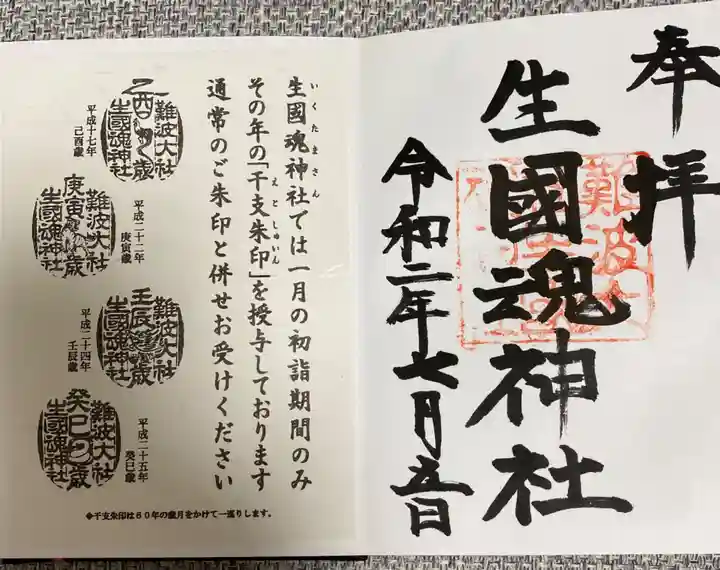 奉拝
生國魂神社
令和二年七月五日
難波大
いくたまさん
生國魂神社では一月の初詣期間のみ
えとしゅいん
その年の「干支朱印」を授与しております
通常のご朱印と併せお受けください
難波大社
乙酉歳
生國魂神社
平成十七年
己酉歳
難波大社
庚寅歳
生國魂神社
平成二十二年
庚寅歳
難波大社
壬辰歳
生國魂神社
平成二十四年
壬辰歳
難波大社
癸巳歳
生國魂神社
平成二十五年
癸巳歳
◆干支朱印は60年の歳月をかけて一巡りします。